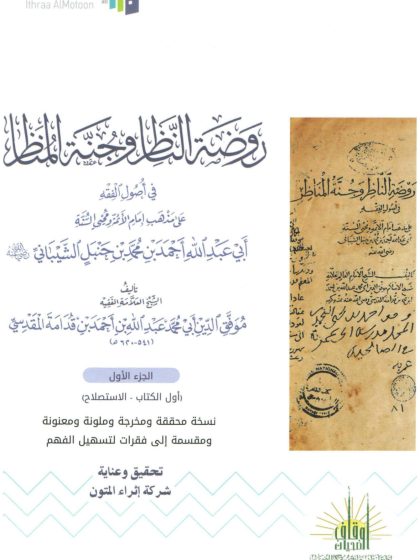 Ithraa AlMotoon
روضة الناظر وجنة المناظر
في أصول الفقه
على مذهب إمام الأئمة ومحيي السنة
أبي عبد الله أحمد بن محمد بن حنبل الشيباني
تأليف
الشيخ العلامة الفقيه
موفق الدين أبي محمد عبد الله بن أحمد بن قدامة المقدسي
(٥٤١-٦٢٠هـ)
الجزء الأول
(أول الكتاب - الاستصلاح)
نسخة محققة ومخرجة وملونة ومعنونة
ومقسمة إلى فقرات لتسهيل الفهم
تحقيق وعناية
شركة إثراء المتون
روضة الناظر وجنة المناظر
في أصول الفقه
٨١
أوقاف
الضحيان